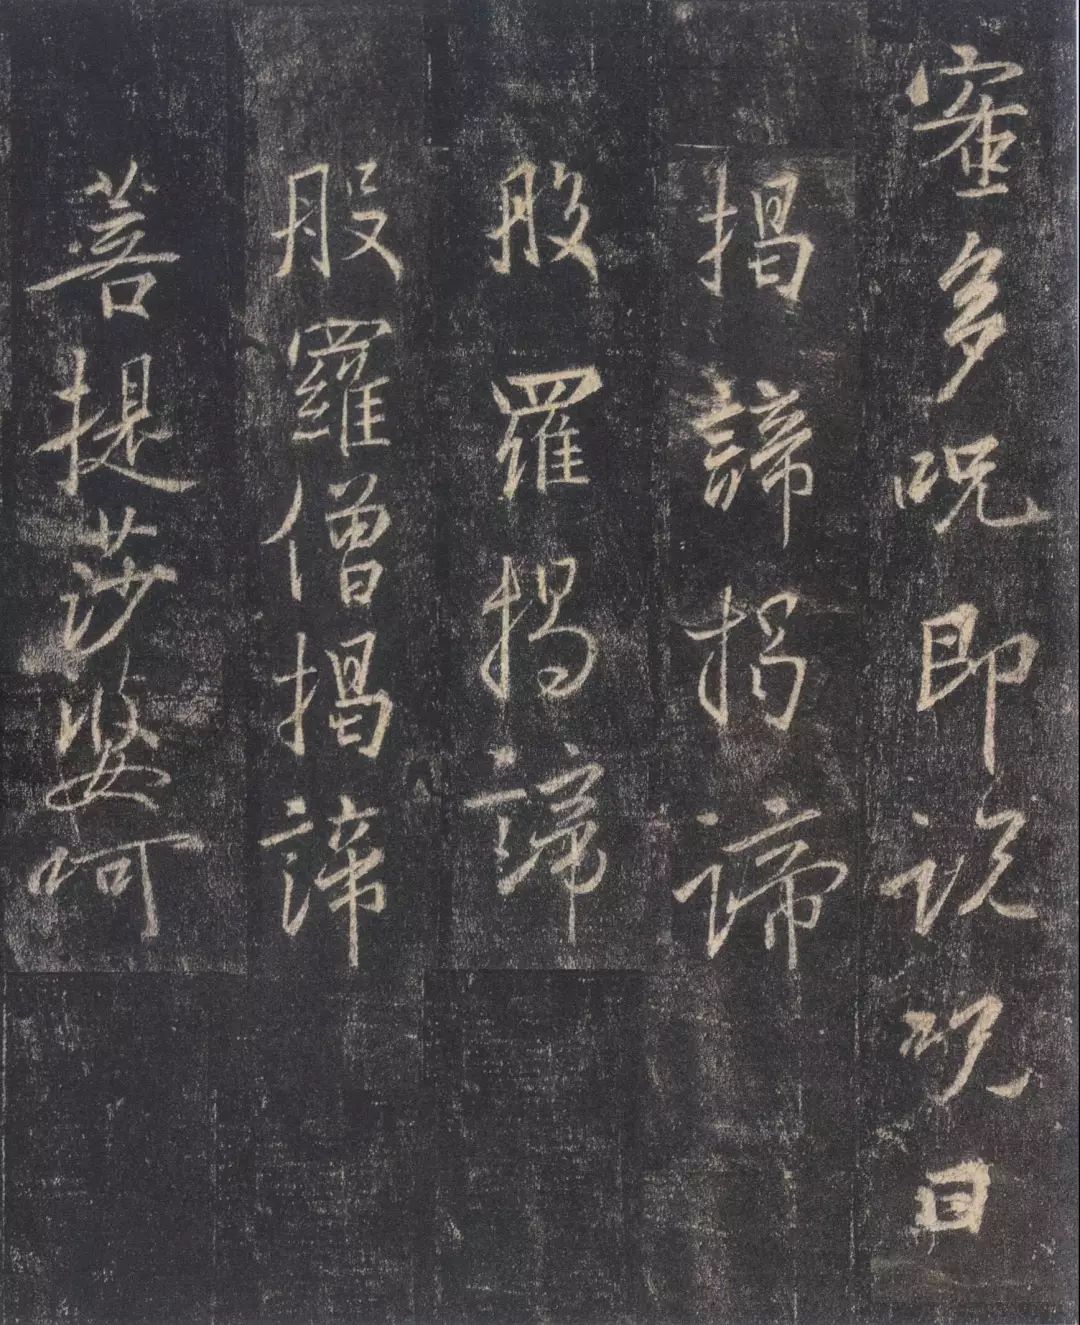 蜜多呪即説呪曰
揭諦揭諦
般羅揭諦
般羅僧揭諦
菩提莎婆呵